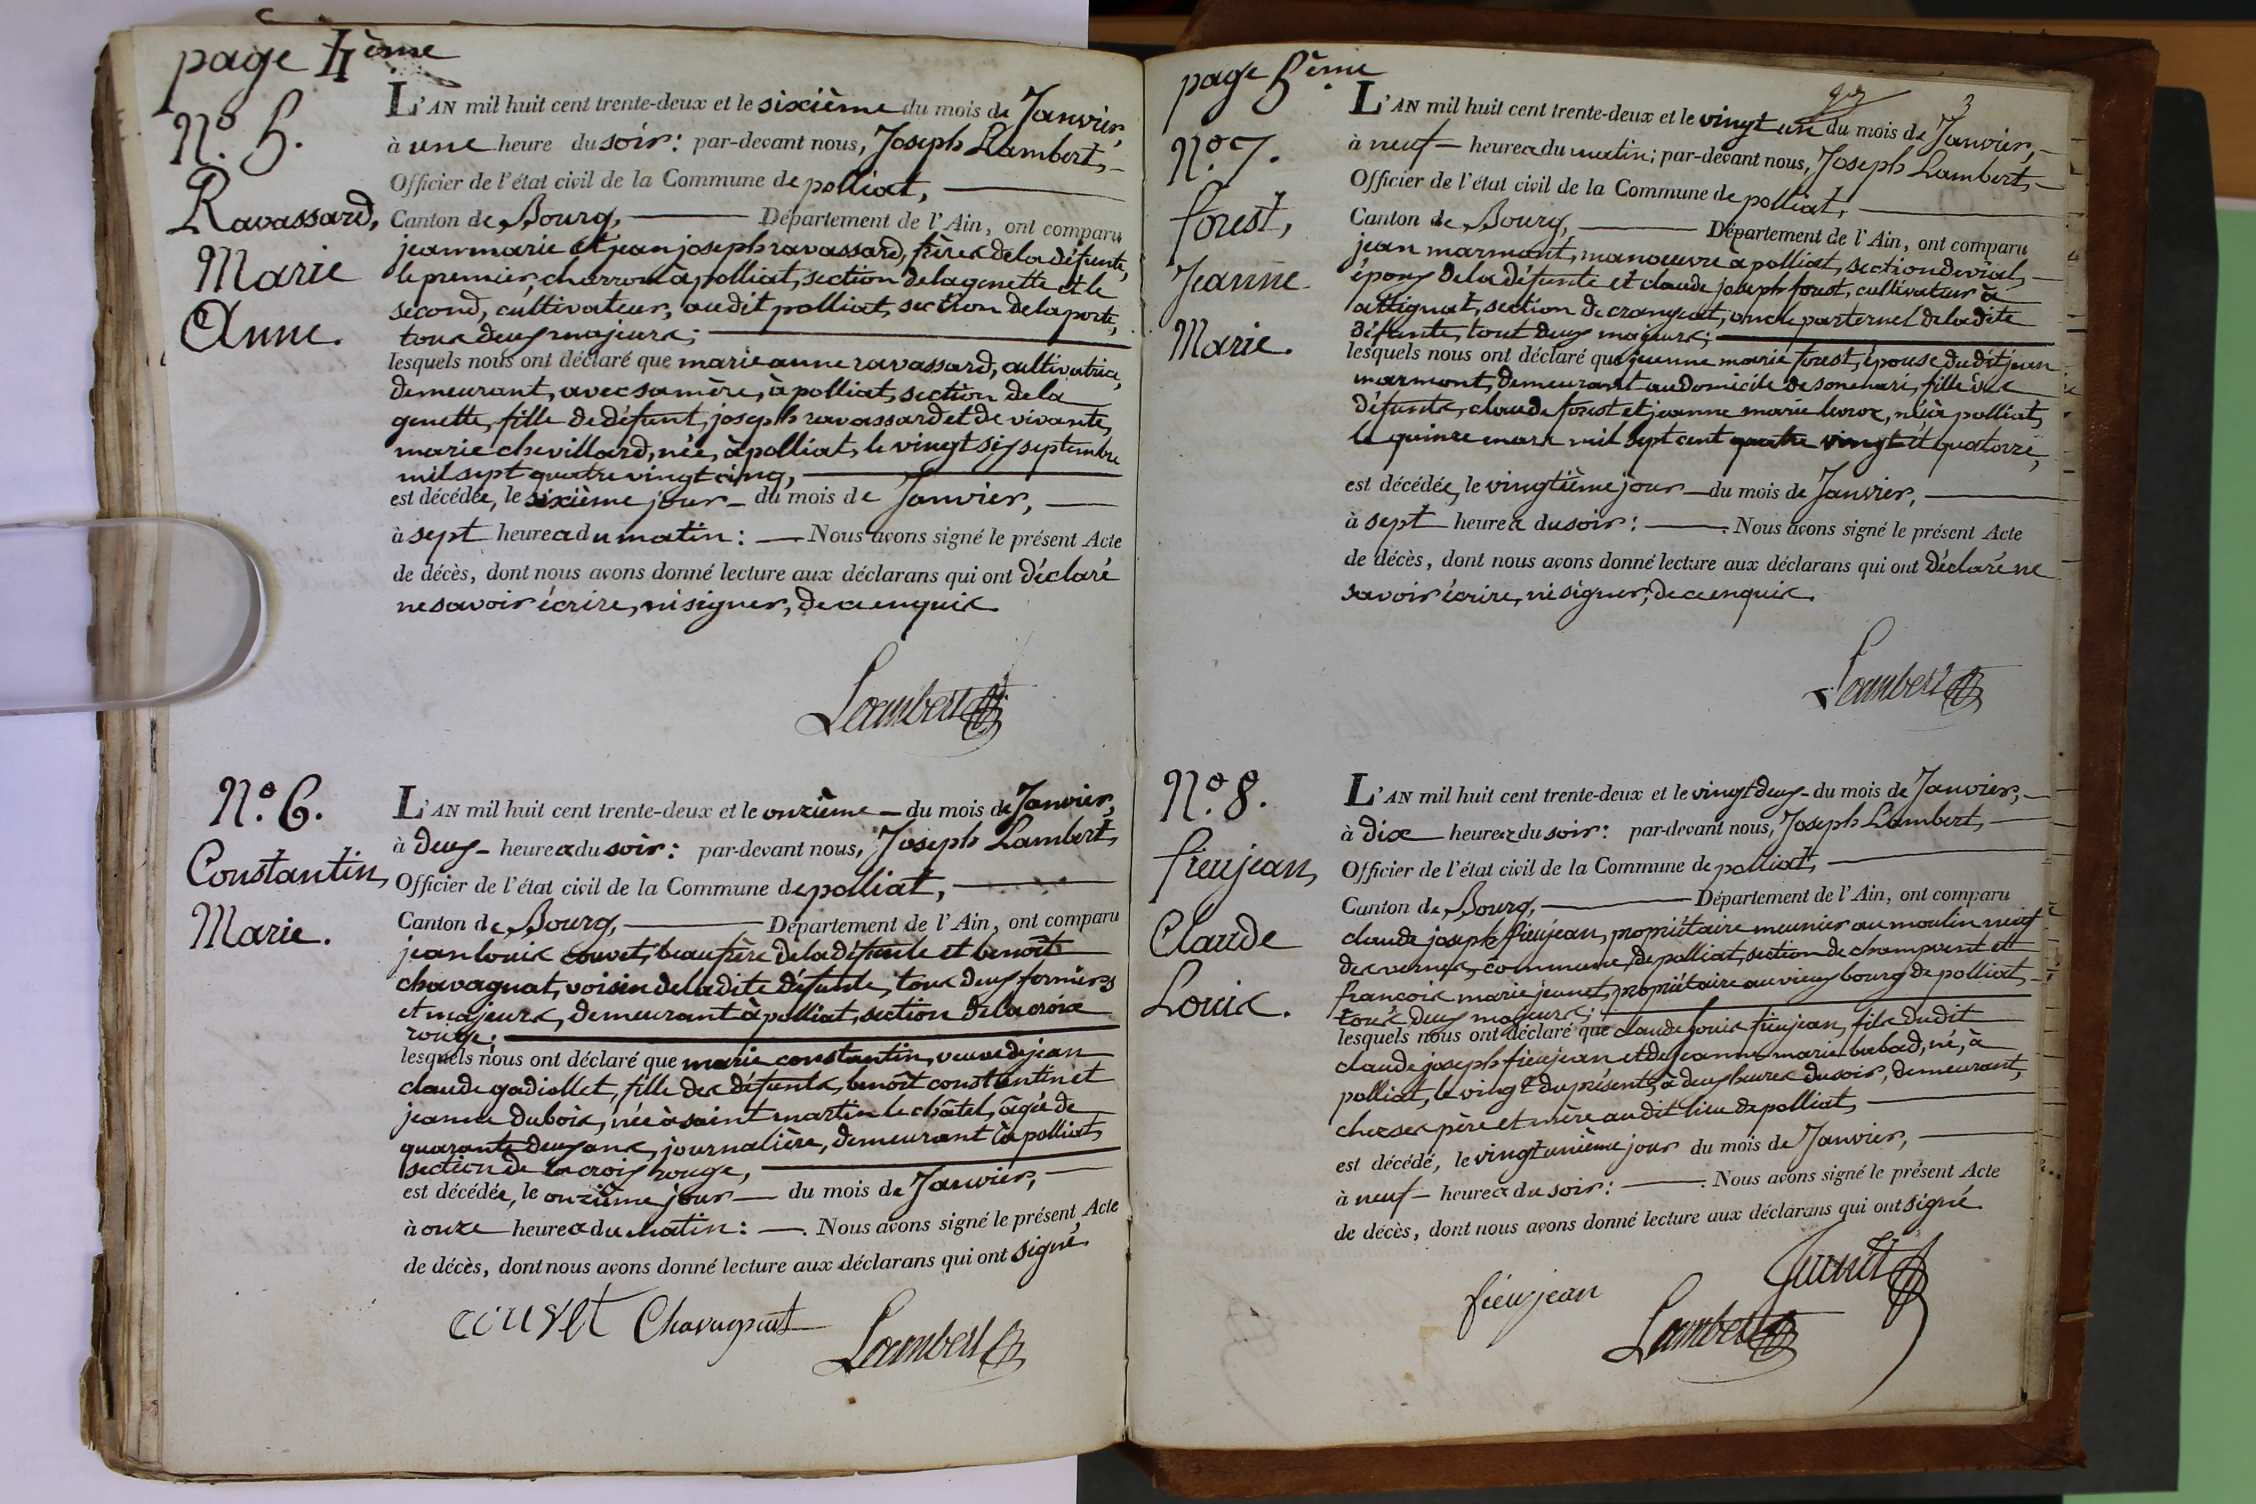 page 4ème
N.º 5.
Ravassard,
Marie
Anne.
L'AN mil huit cent trente-deux et le sixième du mois de Janvier,
à une heure du soir: par-devant nous, Joseph Lambert,
Officier de l'état civil de la Commune de polliat,
Canton de Bourg, Département de l'Ain, ont comparu
jean marie et jean joseph ravassard, frères de la défunte,
le premier, charron à polliat, section de la genette et le
second, cultivateur, audit polliat, section de la porte,
tous deux majeurs;
lesquels nous ont déclaré que marie anne ravassard, cultivatrice,
demeurant, avec sa mère, à polliat, section de la
genette, fille de défunt, joseph ravassard et de vivante,
marie chevillard, née, à polliat, le vingt six septembre
mil sept quatre vingt cinq,
est décédée, le sixième jour du mois de Janvier,
à sept heures du matin: Nous avons signé le présent Acte
de décès, dont nous avons donné lecture aux déclarans qui ont déclaré
ne savoir écrire, ni signer, de ce enquis.
Lambert
N.º 6.
Constantin,
Marie.
L'AN mil huit cent trente-deux et le onzième du mois de Janvier,
à deux heures du soir: par-devant nous, Joseph Lambert,
Officier de l'état civil de la Commune de polliat,
Canton de Bourg, Département de l'Ain, ont comparu
jean louis couvet, beaufrère de la défunte et benoît
chavagnat, voisin de ladite défunte, tous deux fermiers
et majeurs, demeurant à polliat, section de la croix
rouge;
lesquels nous ont déclaré que marie constantin, veuve de jean
claude gadiollet, fille des défunts, benoît constantin et
jeanne dubois, née à saint martin le châtel, âgée de
quarante deux ans, journalière, demeurant à polliat,
section de la croix rouge,
est décédée, le onzième jour du mois de Janvier,
à onze heures du matin: Nous avons signé le présent Acte
de décès, dont nous avons donné lecture aux déclarans qui ont signé.
couvet Chavagnat
Lambert
page 5ème
3
N.º 7.
forest,
Jeanne
Marie.
L'AN mil huit cent trente-deux et le vingt un du mois de Janvier,
à neuf heures du matin; par-devant nous, Joseph Lambert,
Officier de l'état civil de la Commune de polliat,
Canton de Bourg, Département de l'Ain, ont comparu
jean marmont, manoeuvre à polliat, section de vial,
époux de la défunte et claude joseph forest, cultivateur à
attignat, section de crangeat, oncle parternel de ladite
défunte, tout deux majeurs;
lesquels nous ont déclaré que jeanne marie forest, épouse dudit jean
marmont, demeurant au domicile de son mari, fille des
défunts, claude forest et jeanne marie leroz, née à polliat,
le quinze mars mil sept cent quatre vingt et quatorze,
est décédée, le vingtième jour du mois de Janvier,
à sept heures du soir: Nous avons signé le présent Acte
de décès, dont nous avons donné lecture aux déclarans qui ont déclaré ne
savoir écrire, ni signer, de ce enquis.
Lambert
N.º 8.
fieujean,
Claude
Louis.
L'AN mil huit cent trente-deux et le vingt deux du mois de Janvier,
à dix heures du soir: par-devant nous, Joseph Lambert,
Officier de l'état civil de la Commune de polliat,
Canton de Bourg, Département de l'Ain, ont comparu
claude joseph fieujean, propriétaire meunier au moulin neuf
des vernes, commune, de polliat, section de champvent et
françois marie jeunet, propriétaire au vieux bourg de polliat,
tous deux majeurs;
lesquels nous ont déclaré que claude louis fieujean, fils dudit
claude joseph fieujean et de jeanne marie babad, né, à
polliat, le vingt du présent, à deux heures du soir, demeurant,
chez ses père et mère audit lieu de polliat,
est décédé, le vingt unième jour du mois de Janvier,
à neuf heures du soir: Nous avons signé le présent Acte
de décès, dont nous avons donné lecture aux déclarans qui ont signé
fieujean
Jeunet
Lambert